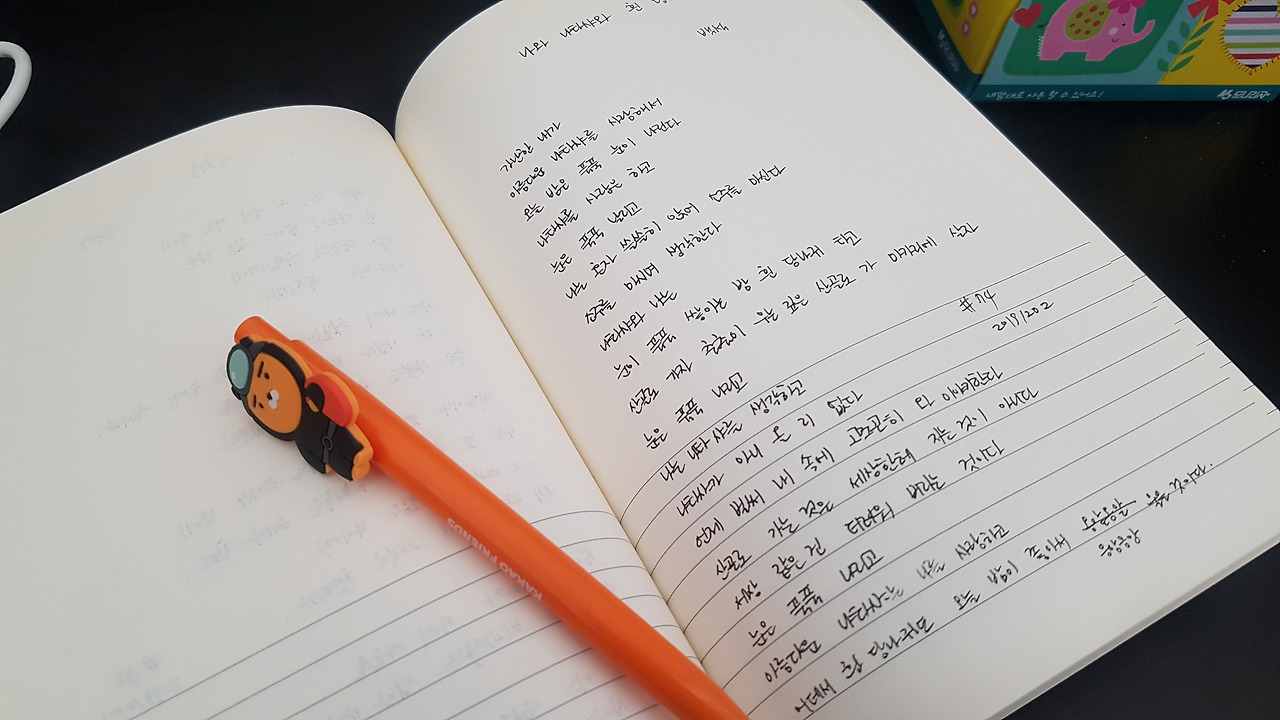 나와 나타샤와 흰
백석
가난한 내가
아름다운 나타샤를 사랑해서
오늘 밤은 푹푹 눈이 나린다
나타샤를 사랑은 하고
눈은 푹푹 날리고
나는 혼자 쓸쓸히 앉어 소주를 마신다
소주를 마시며 생각한다
나타샤와 나는
눈이 푹푹 쌓이는 밤 흰 당나귀 타고
산골로 가자 출출이 우는 깊은 산골로 가 마가리에 살자
눈은 푹푹 나리고
#74
20171202
나는 나타샤를 생각하고
나타샤가 아니 올 리 없다
언제 벌써 내 속에 고조곤히 와 이야기한다
산골로 가는 것은 세상한테 지는 것이 아니다
세상 같은 건 더러워 버리는 것이다
눈은 푹푹 나리고
아름다운 나타샤는 나를 사랑하고
어데서 흰 당나귀도 오늘 밤이 좋아서 응앙응앙 울을 것이다.
응앙응앙
KAKAO FRIENDS
내맘대로 사용 할 수 있어요!
모나리자